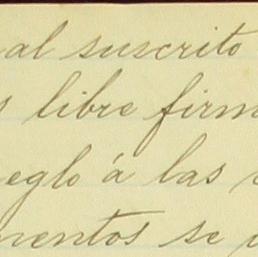 al suscrito
s libre firm
eglo á las
mentos se